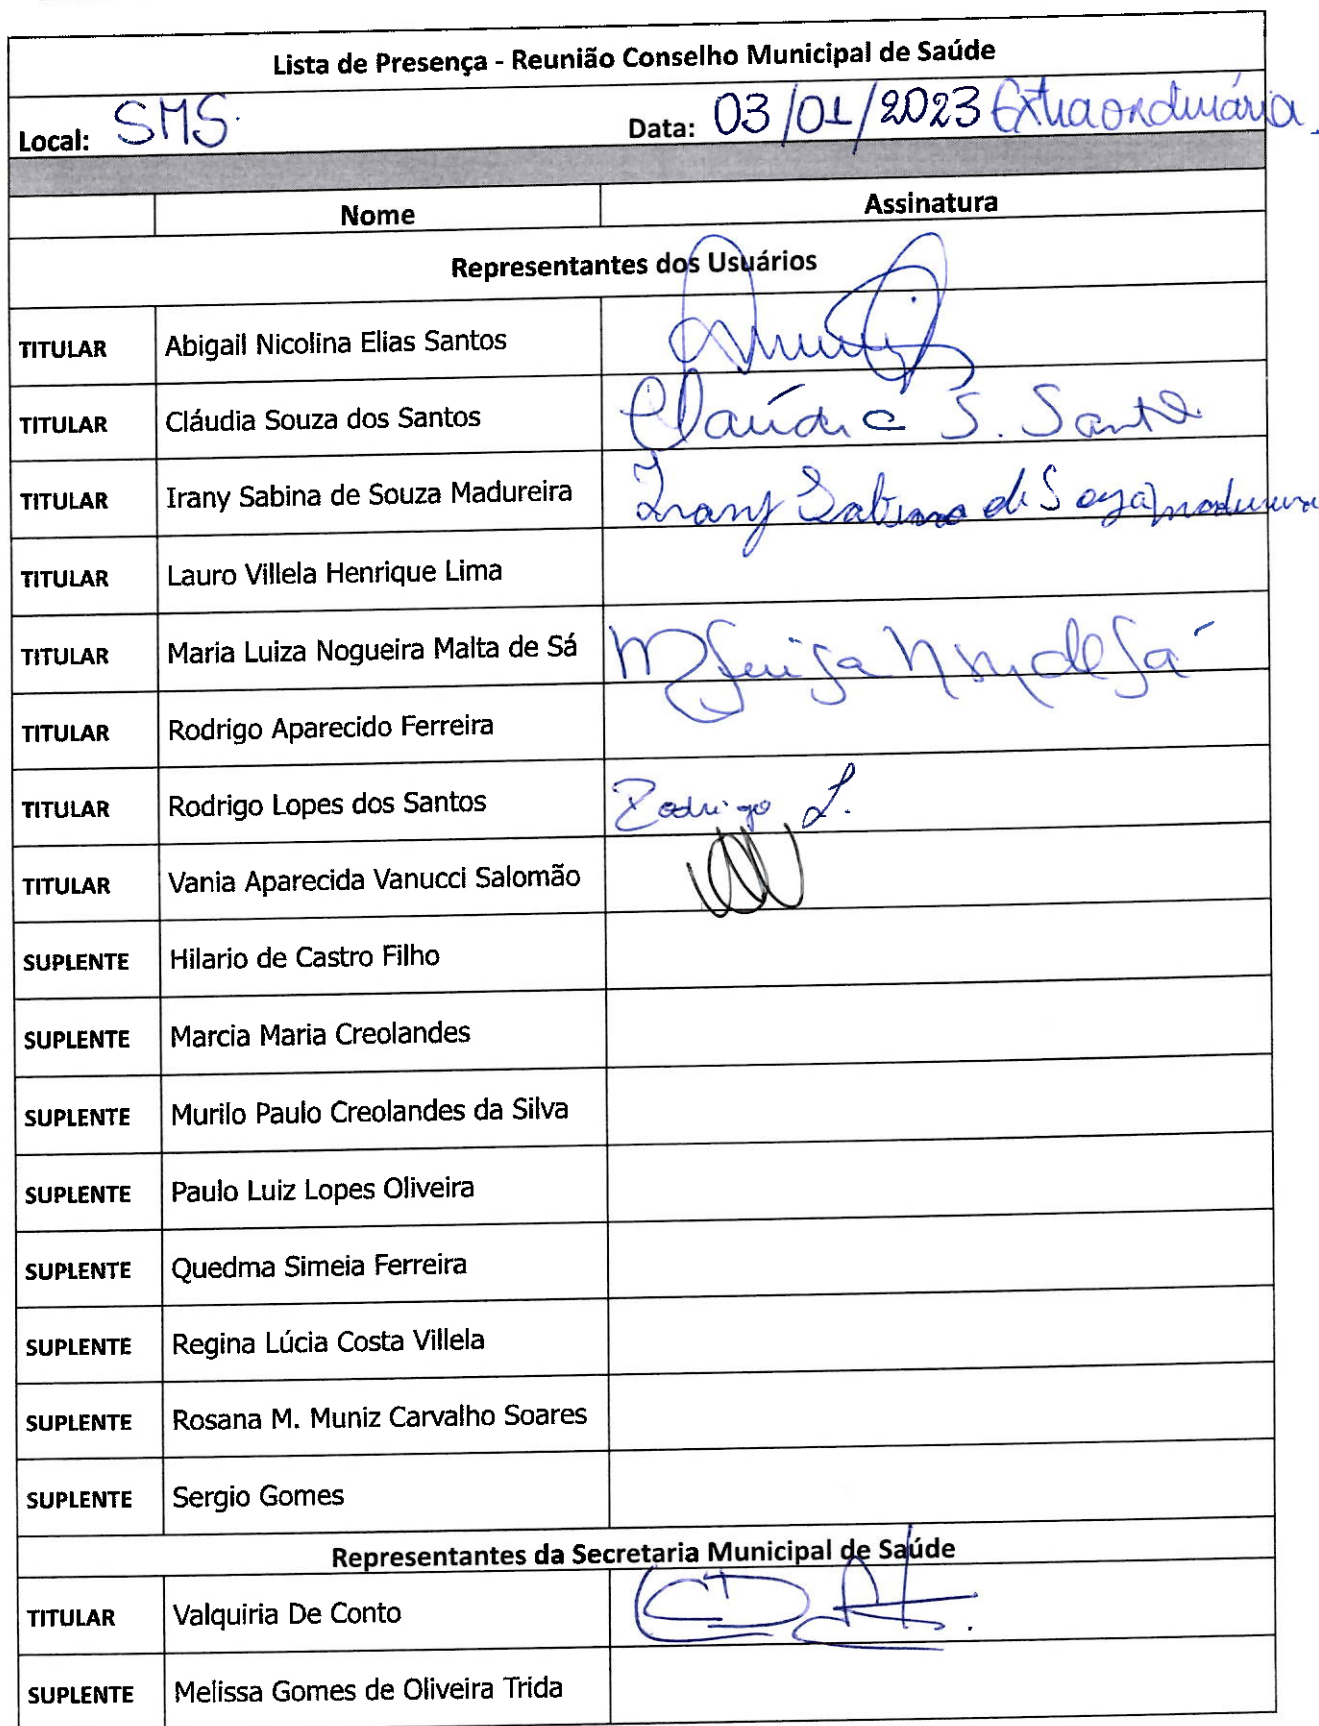 Lista de Presença - Reunião Conselho Municipal de Saúde
Local: SMS. Data: 03/01/2023 Extraordinária.
Nome Assinatura
Representantes dos Usuários
TITULAR Abigail Nicolina Elias Santos
TITULAR Cláudia Souza dos Santos Claúdia S. Santos
TITULAR Irany Sabina de Souza Madureira Irany Sabina de Souza madureira
TITULAR Lauro Villela Henrique Lima
TITULAR Maria Luiza Nogueira Malta de Sá
TITULAR Rodrigo Aparecido Ferreira
TITULAR Rodrigo Lopes dos Santos Rodrigo L.
TITULAR Vania Aparecida Vanucci Salomão
SUPLENTE Hilario de Castro Filho
SUPLENTE Marcia Maria Creolandes
SUPLENTE Murilo Paulo Creolandes da Silva
SUPLENTE Paulo Luiz Lopes Oliveira
SUPLENTE Quedma Simeia Ferreira
SUPLENTE Regina Lúcia Costa Villela
SUPLENTE Rosana M. Muniz Carvalho Soares
SUPLENTE Sergio Gomes
Representantes da Secretaria Municipal de Saúde
TITULAR Valquiria De Conto
SUPLENTE Melissa Gomes de Oliveira Trida